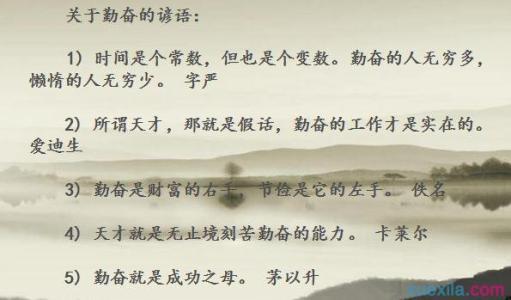 关于勤奋的谚语：
1) 时间是个常数，但也是个变数。勤奋的人无穷多，
懒惰的人无穷少。 字严
2) 所谓天才，那就是假话，勤奋的工作才是实在的。
爱迪生
3) 勤奋是财富的右手，节俭是它的左手。 佚名
4) 天才就是无止境刻苦勤奋的能力。 卡莱尔
5) 勤奋就是成功之母。 茅以升
xuexila.com